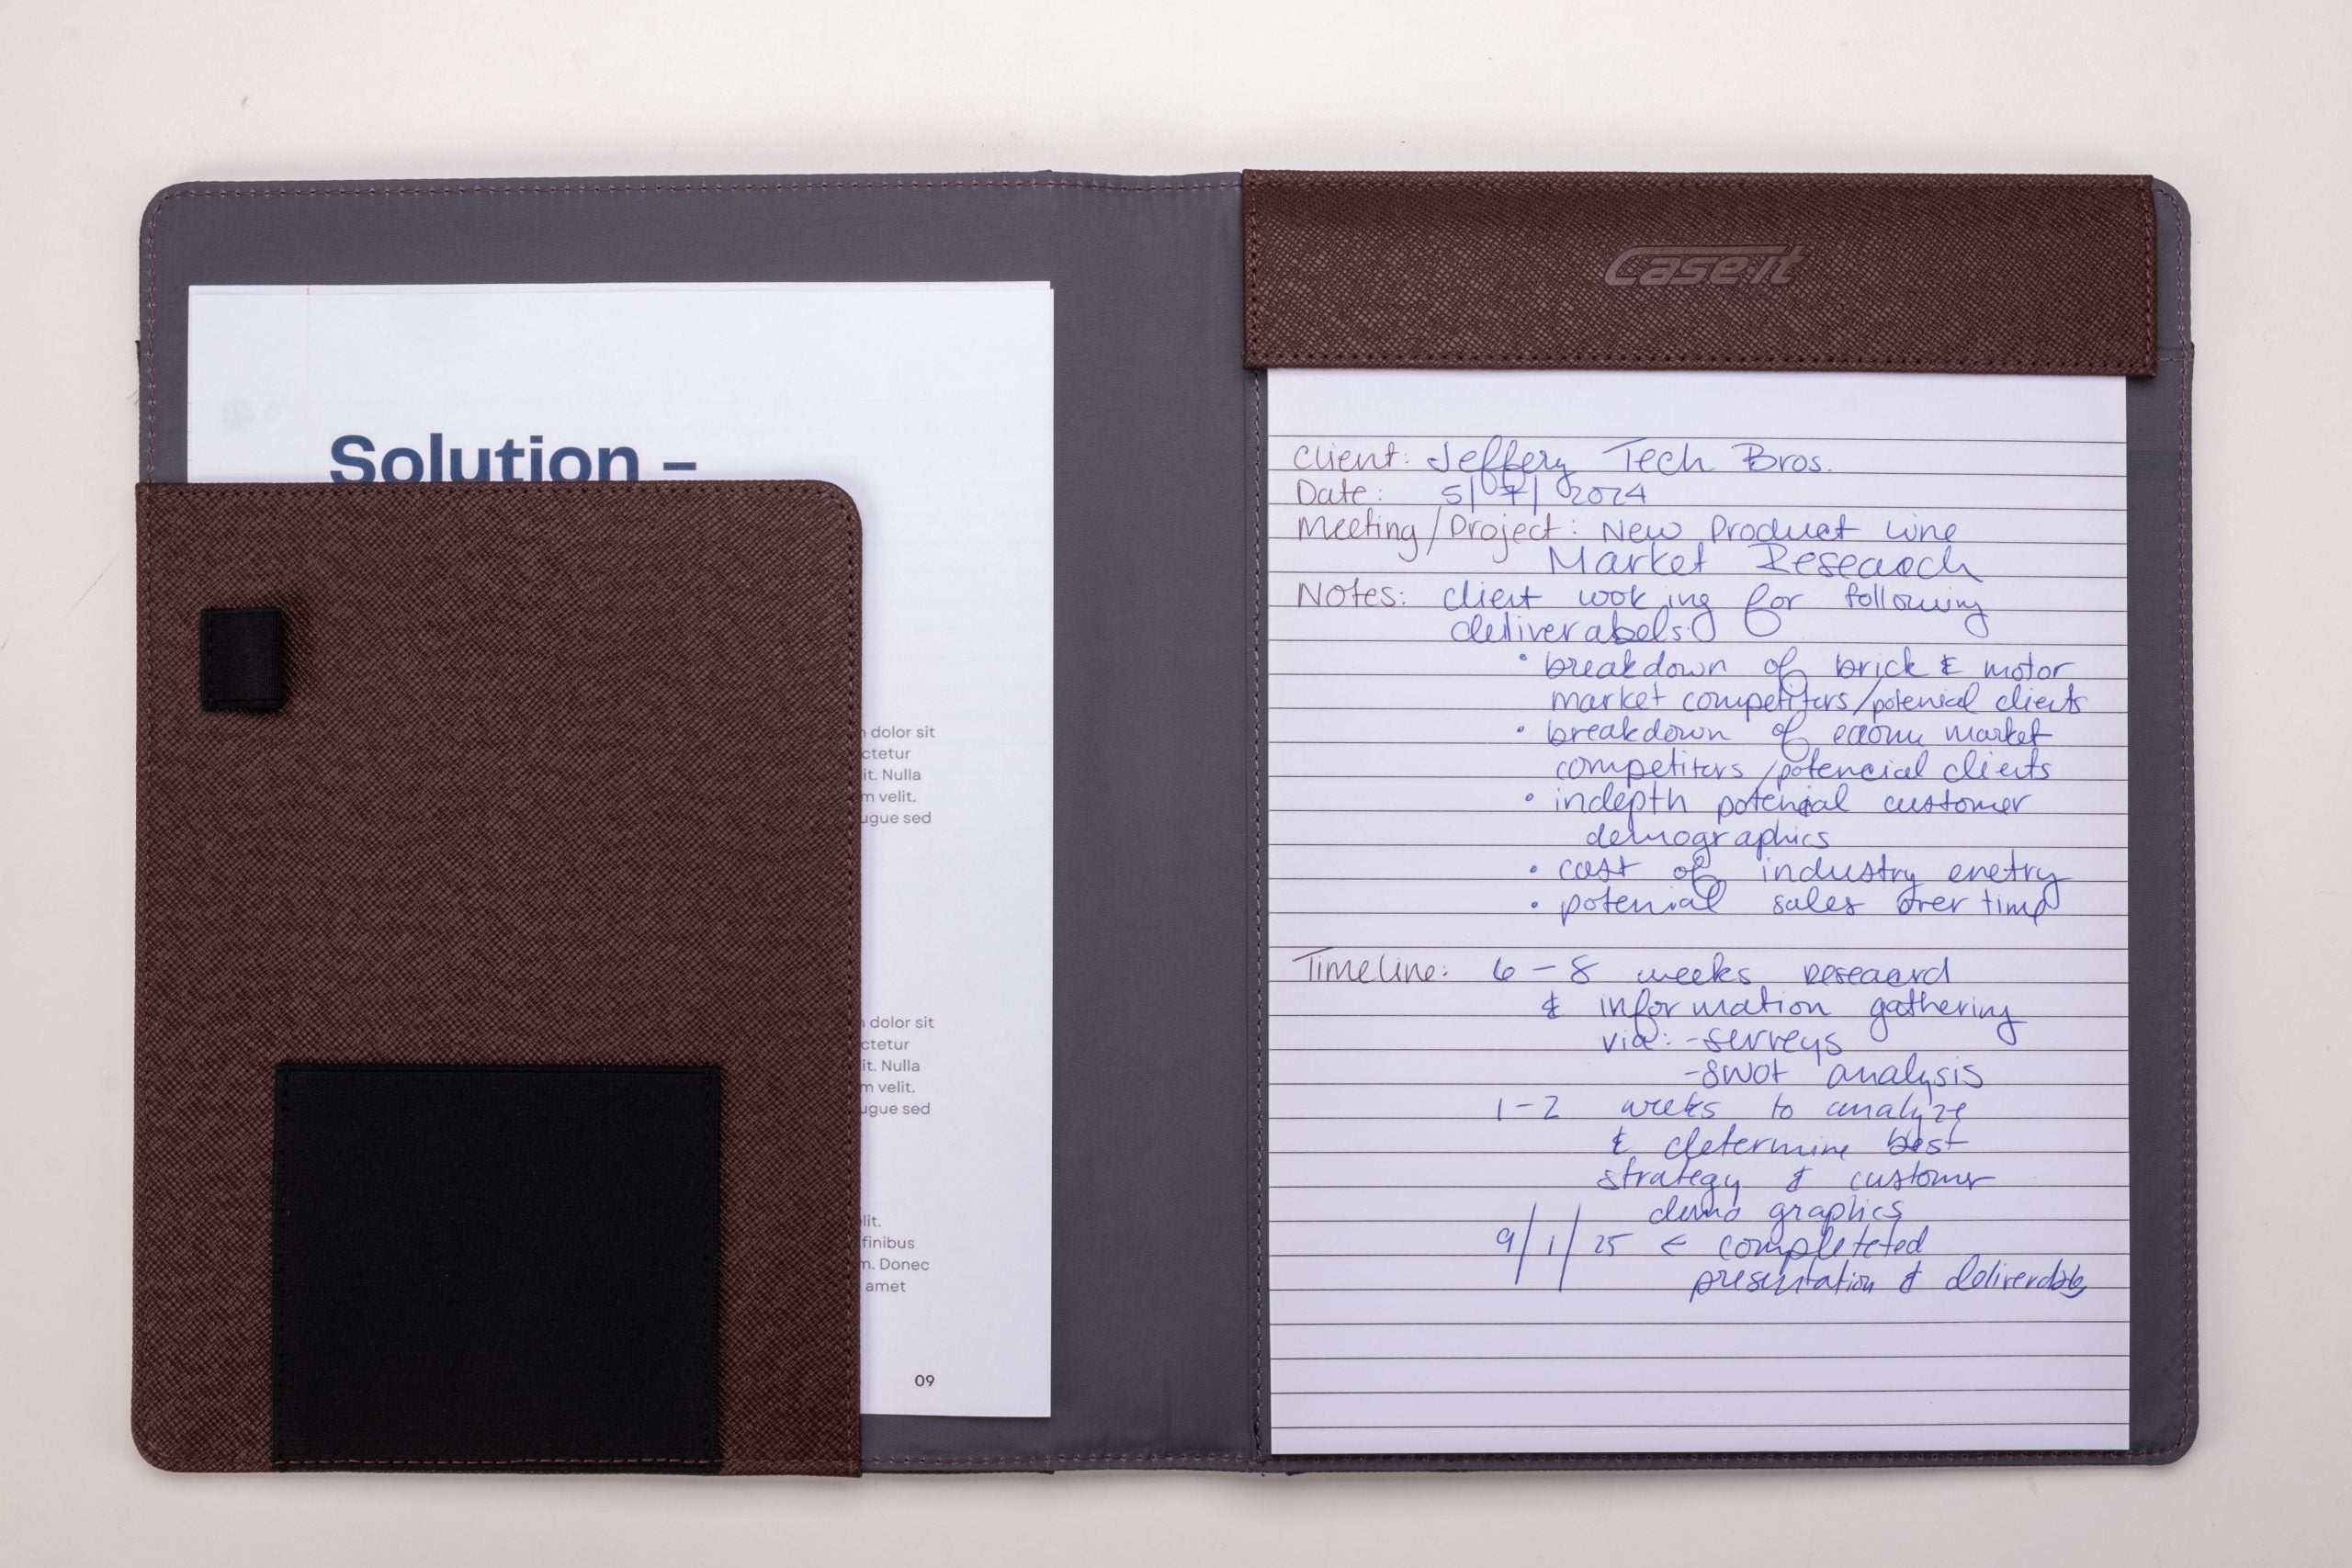 Solution –
n dolor sit
ctetur
it. Nulla
m velit.
ugue sed
n dolor sit
ctetur
it. Nulla
m velit.
ugue sed
lit.
finibus
n. Donec
amet
09
Case·it
Client: Jeffery Tech Bros.
Date: 5/7/2024
Meeting/Project: New Product Line
Market Research
Notes: client looking for following
deliverabels:
• breakdown of brick & motor
market competitors/potenial clients
• breakdown of ecomm market
competitors/potencial clients
• indepth potential customer
demographics
• cost of industry enetry
• potenial sales over time
Timeline: 6-8 weeks research
& information gathering
via: -surveys
-SWOT analysis
1-2 weeks to analyze
& determine best
strategy & customer
demographics
9/1/25 ← completeted
presentation & deliverables